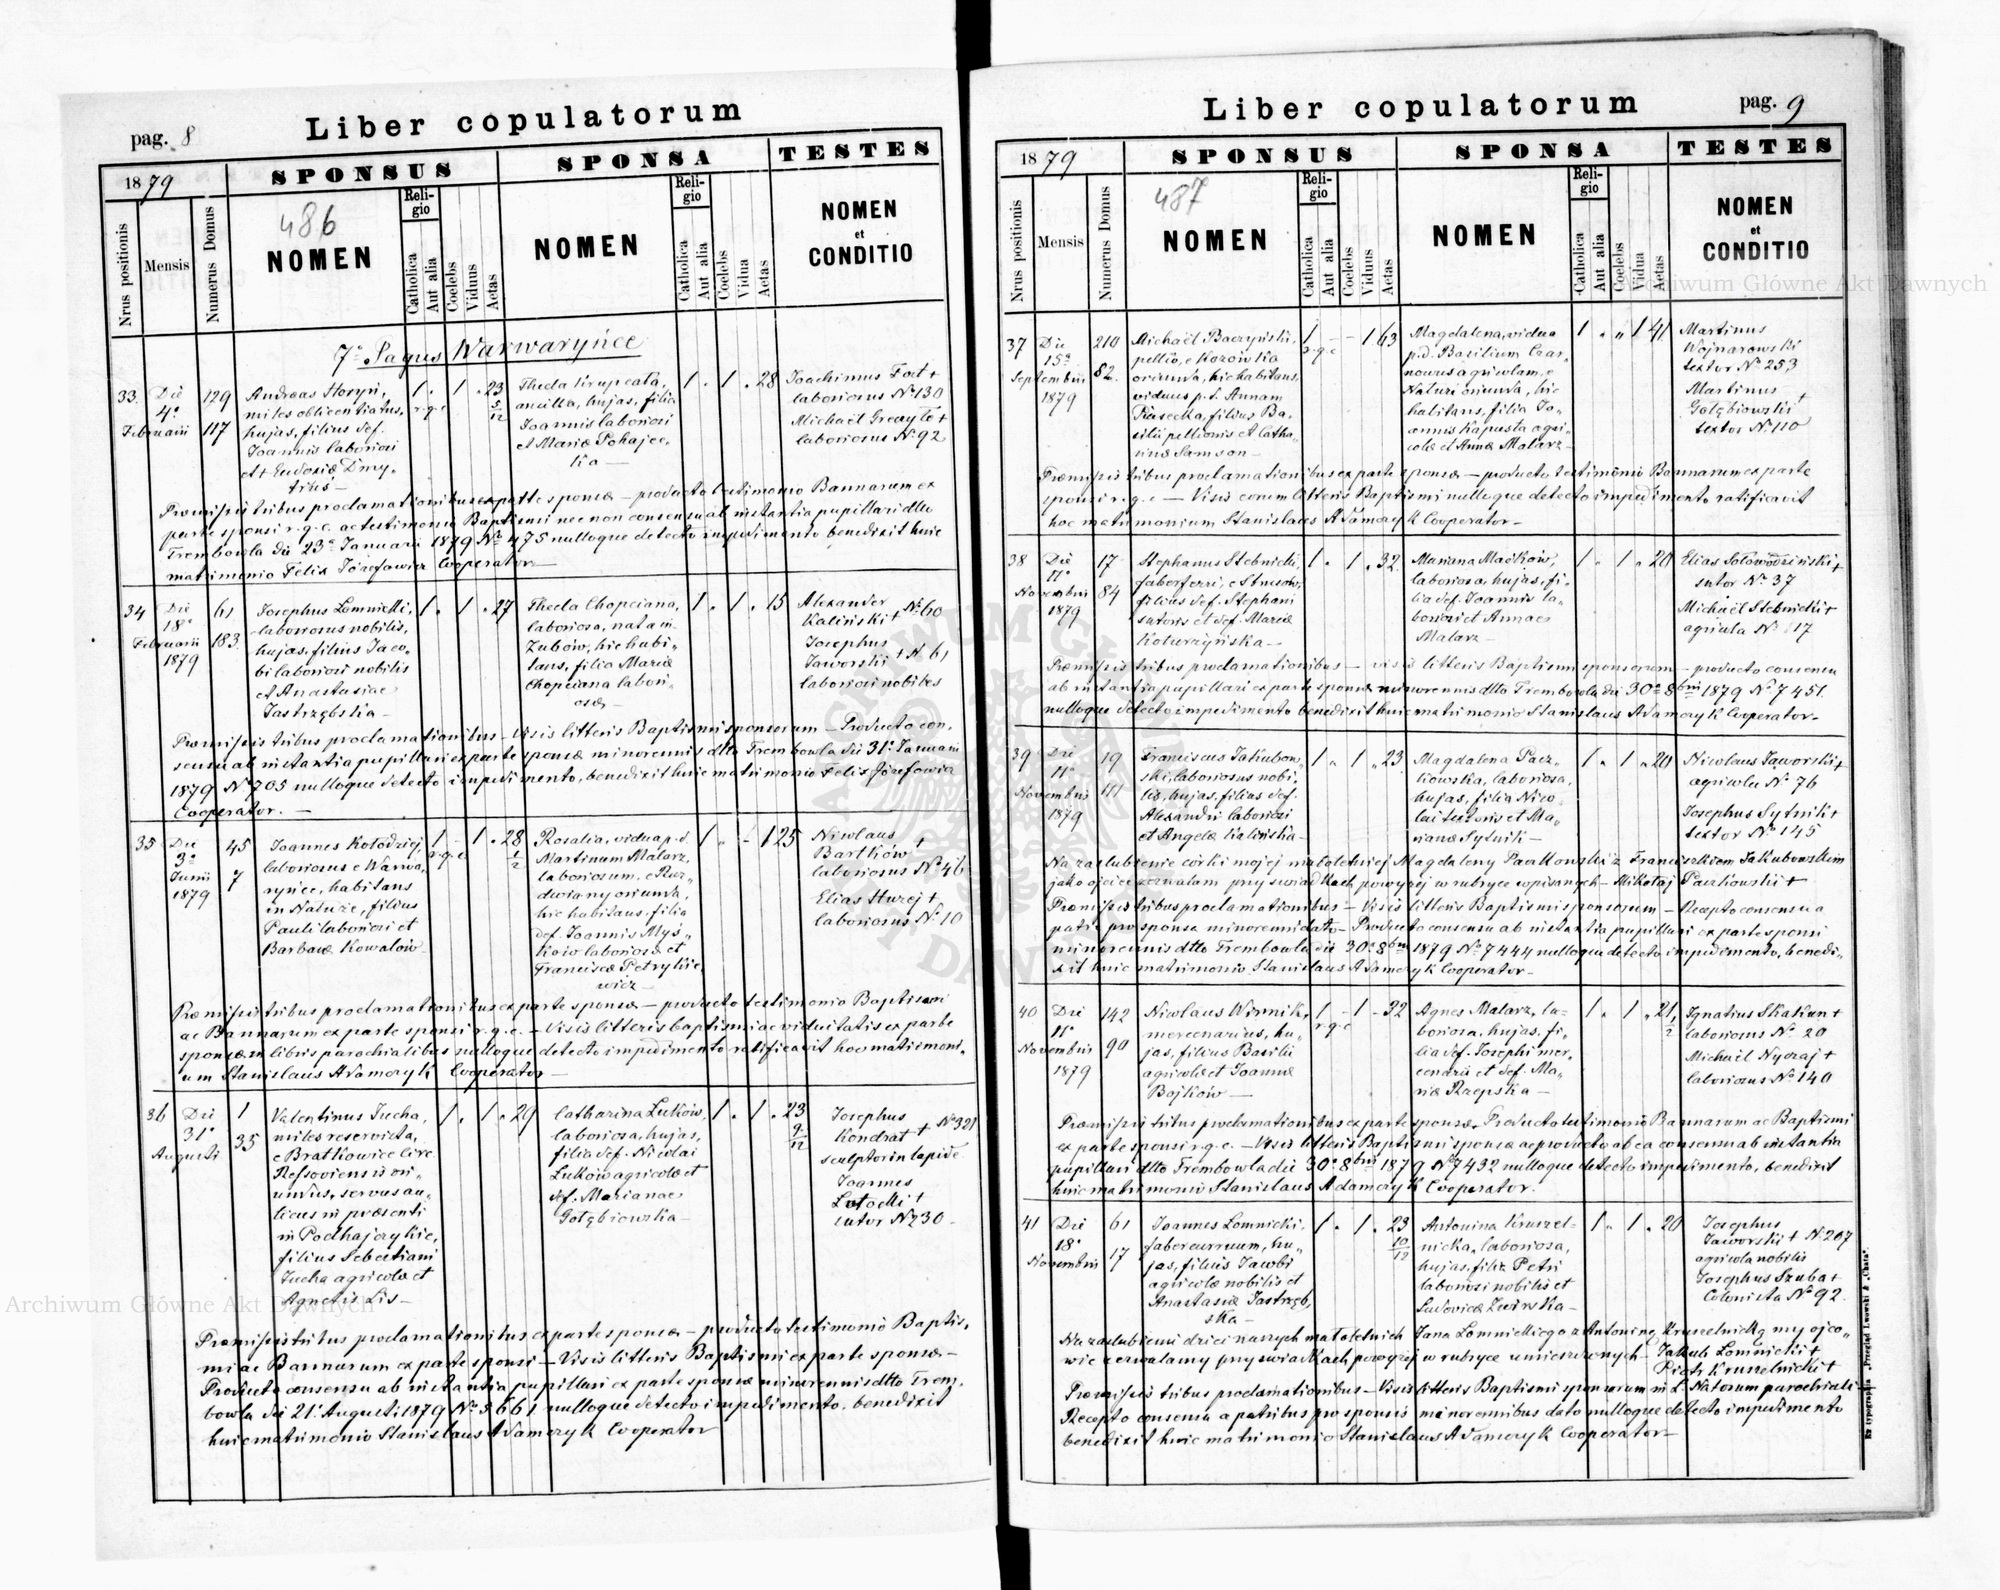 pag. 8
Liber copulatorum
1879
SPONSUS
SPONSA
TESTES
Nrus positionis
Mensis
Numerus Domus
486
NOMEN
Religio
Catholica
Aut alia
Coelebs
Viduus
Aetas
NOMEN
Religio
Catholica
Aut alia
Coelebs
Vidua
Aetas
NOMEN
et
CONDITIO
7o Pagus Warwaryńce
33.
Die
4a
Februarii
129
117
Andreas Horyń,
miles oblicentiatus,
hujas, filius def.
Joannis laboriosi
et + Eudoxiæ Dmy-
triś —
1 . 1 . 23 5/12
r.g.c
Thecla Krupcata,
ancilla, hujas, filia
Joannis laboriosi
et Mariæ Pohajec-
ka —
1 . 1 . 28
Joachimus Fort +
laboriosus No 130
Michaël Grecyło +
laboriosus No 92
Præmissis tribus proclamationibus ex parte sponsæ — producto testimonio Bannorum ex
parte sponsi r.g.c. ac testimonio Baptismi nec non consensu ab instantia pupillari dtto
Trembowla die 23a Januarii 1879 No 475 nulloque detecto impedimento benedixit huic
matrimonio Felix Józefowicz Cooperator —
34
Die
18a
Februarii
1879
61
183.
Josephus Łomnicki,
laboriosus nobilis,
hujas, filius Jaco-
bi laboriosi nobilis
et Anastasiae
Jastrzębska —
1 . 1 . 27
Thecla Chopciana,
laboriosa, nata in
Zubów, hic habi-
tans, filia Mariæ
Chopciana labori-
osæ —
1 . 1 . 15
Alexander
Kaliński + No 60
Josephus
Jaworski + N. 61
laboriosi nobiles
Præmissis tribus proclamationibus — Visis litteris Baptismi sponsorum — Producto con-
sensu ab instantia pupillari ex parte sponsæ minorennis dtto Trembowla die 31a Januarii
1879 No 705 nulloque detecto impedimento, benedixit huic matrimonio Felix Józefowicz
Cooperator. —
35
Die
3a
Junii
1879
45
7
Joannes Kołodziej
laboriosus e Warwa-
ryńce, habitans
in Nałuże, filius
Pauli laboriosi et
Barbaræ Kowalów —
1 - 1 . 28 1/2
r.g.c
Rosalia, vidua p.d.
Martinum Malarz,
laboriosum, e Ruz-
dwiany oriunda,
hic habitans, filia
def. Joannis Myś-
ków laboriosi et
Franciscæ Petrykie-
wicz —
1 . - 1 25
Nicolaus +
Bartków
laboriosus No 46
Elias Huzej +
laboriosus No 10
Præmissis tribus proclamationibus ex parte sponsæ — producto testimonio Baptismi
ac Bannorum ex parte sponsi r.g.c. — Visis litteris baptismi ac viduitatis ex parte
sponsæ in libris parochialibus nulloque detecto impedimento ratificavit hoc matrimoni-
um Stanislaus Adamczyk Cooperator —
36
Die
31a
Augusti
1
35
Valentinus Jucha,
miles reservista,
e Bratkowice circ.
Ressoviensis ori-
undus, servus au-
licus in præsenti
in Podhajczykie,
filius Sebastiani
Jucha agricolæ et
Agnetis Lis —
1 . 1 . 29
Catharina Luków,
laboriosa, hujas,
filia def. Nicolai
Luków agricolæ et
def. Marianae
Gołębiowska —
1 . 1 . 23 9/12
Josephus
Kondrat + No 321
sculptor in lapide
Joannes
Łotocki +
sutor No 30 —
Præmissis tribus proclamationibus ex parte sponsæ — producto testimonio Baptis-
mi ac Bannorum ex parte sponsi — Visis litteris Baptismi ex parte sponsæ —
Producto consensu ab instantia pupillari ex parte sponsæ minorennis dtto Trem-
bowla die 21a Augusti 1879 No 5661 nulloque detecto impedimento, benedixit
huic matrimonio Stanislaus Adamczyk Cooperator
Liber copulatorum
pag. 9
1879
SPONSUS
SPONSA
TESTES
Nrus positionis
Mensis
Numerus Domus
487
NOMEN
Religio
Catholica
Aut alia
Coelebs
Viduus
Aetas
NOMEN
Religio
Catholica
Aut alia
Coelebs
Vidua
Aetas
NOMEN
et
CONDITIO
37
Die
15a
Septembris
1879
210
82.
Michaël Baczyński,
pellio, e Kozówka
oriundus, hic habitans,
viduus p.d. Annam
Kasecka, filius Ba-
silii pellionis et Catha-
rinæ Samson —
1 - - 1 63
r.g.c
Magdalena, vidua
p.d. Basilium Czar-
nowus agricolam, e
Nałuże oriunda, hic
habitans, filia Jo-
annis Kapusta agri-
colæ et Annæ Malarz —
1 . " 1 41
Martinus
Wojnarowski
textor No 253
Martinus
Gołębiowski +
textor No 110
Præmissis tribus proclamationibus ex parte sponsæ — producto testimonio Bannorum ex parte
sponsi r.g.c — Visis eorum litteris Baptismi nulloque detecto impedimento ratificavit
hoc matrimonium Stanislaus Adamczyk Cooperator —
38
Die
11a
Novembris
1879
17
84
Stephanus Stebnicki,
faber ferri, e Strusów,
filius def. Stephani
sutoris et def. Mariæ
Koturzyńska —
1 . 1 . 32
Mariana Maćków,
laboriosa, hujas, fi-
lia def. Joannis la-
boriosi et Annae
Malarz —
1 . 1 . 20
Elias Sołowodziński +
sutor No 37
Michaël Stebnicki +
agricola No 117
Præmissis tribus proclamationibus — visis litteris Baptismi sponsorum — producto consensu
ab instantia pupillari ex parte sponsæ minorennis dtto Trembowla die 30a 8bris 1879 No 7451.
nulloque detecto impedimento benedixit huic matrimonio Stanislaus Adamczyk Cooperator —
39
Die
11a
Novembris
1879
19
111
Franciscus Jakubow-
ski, laboriosus nobi-
lis, hujas, filius def.
Alexandri laboriosi
et Angelæ Kalińska —
1 . 1 . 23
Magdalena Pacz-
kowska, laboriosa,
hujas, filia Nico-
lai textoris et Ma-
rianæ Sytnik —
1 . 1 . 20
Nicolaus Jaworski +
agricola No 76
Josephus Sytnik +
textor No 145
Na zaślubienie córki mojej małoletniej Magdaleny Paczkowskiej z Franciszkiem Jakubowskim
jako ojciec zezwalam przy świadkach powyżej w rubryce wpisanych — Mikołaj Paczkowski +
Præmissis tribus proclamationibus — Visis litteris Baptismi sponsorum — Recepto consensu a
patre pro sponsa minorenni dato — Producto consensu ab instantia pupillari ex parte sponsi
minorennis dtto Trembowla die 30a 8bris 1879 No 7444 nulloque detecto impedimento, benedi-
xit huic matrimonio Stanislaus Adamczyk Cooperator —
40
Die
11a
Novembris
1879
142
90
Nicolaus Winnik,
mercenarius, hu-
jas, filius Basilii
agricolæ et Joannæ
Bojków —
1 - 1 - 32
r.g.c
Agnes Malarz, la-
boriosa, hujas, fi-
lia def. Josephi mer-
cenarii et def. Ma-
riæ Rzepska —
1 . 1 . 21 1/2
Ignatius Skakun +
laboriosus No 20
Michaël Nyczaj +
laboriosus No 140
Præmissis tribus proclamationibus ex parte sponsæ. Producto testimonio Bannorum ac Baptismi
ex parte sponsi r.g.c. — Visis litteris Baptismi sponsæ ac producto ab ea consensu ab instantia
pupillari dtto Trembowla die 30a 8bris 1879 No 7432 nulloque detecto impedimento, benedixit
huic matrimonio Stanislaus Adamczyk Cooperator.
41
Die
18a
Novembris
61
17
Joannes Łomnicki,
faber curruum, hu-
jas, filius Jacobi
agricolæ nobilis et
Anastasiæ Jastrzęb-
ska —
1 . 1 . 23 10/12
Antonina Kruszel-
nicka, laboriosa,
hujas, filia Petri
laboriosi nobilis et
Ludovicæ Zwirska —
1 . 1 . 20
Josephus
Jaworski + N. 207
agricola nobilis
Josephus Szuba +
Colonista No 92
Na zaślubieni dzieci naszych małoletnich Jana Łomnickiego z Antoniną Kruszelnicką my ojco-
wie zezwalamy przy świadkach powyżej w rubryce umieszczonych — Jakub Łomnicki +
Piotr Kruszelnicki +
Præmissis tribus proclamationibus — Visis litteris Baptismi sponsorum in L. Natorum parochiali —
Recepto consensu a patribus pro sponsis minorennibus dato nulloque detecto impedimento
benedixit huic matrimonio Stanislaus Adamczyk Cooperator —
Ex typographia „Przegląd Lwowski & „Chata".
Archiwum Główne Akt Dawnych
Archiwum Główne Akt Dawnych